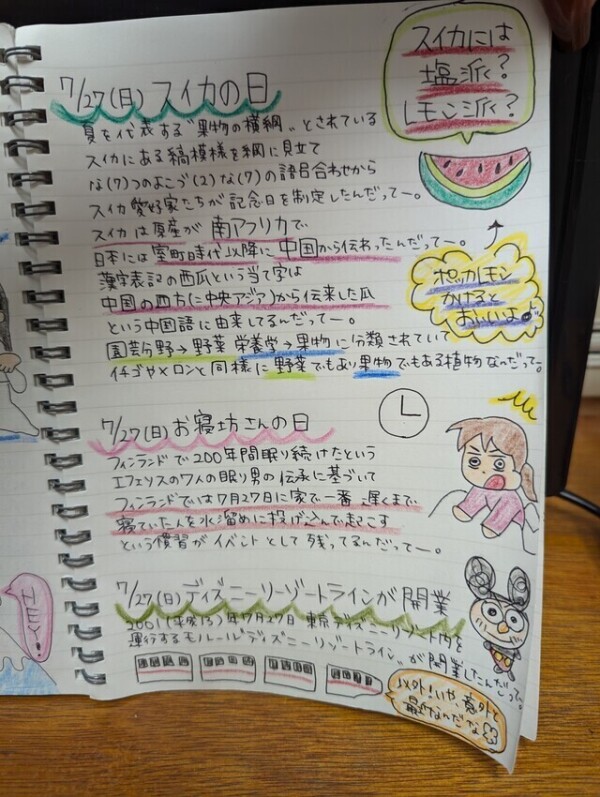 スイカには
塩派?
レモン派?
7/27(日)スイカの日
夏を代表する"果物の横綱"とされている
スイカにある縞模様を綱に見立て
な(7)つのよこづ(2)な(7)の語呂合わせから
スイカ愛好家たちが記念日を制定したんだってー。
スイカは原産が南アフリカで
日本には室町時代以降に中国から伝わったんだってー。
漢字表記の西瓜という当て字は
中国の西方(中央アジア)から伝来した瓜
という中国語に由来してるんだってー。
園芸分野→野菜 栄養学→果物に分類されていて
イチゴやメロンと同様に野菜でもあり果物でもある植物なんだって。
ポッカレモン
かけると
おいしいよ
7/27(日)お寝坊さんの日
フィンランドで200年間眠り続けたという
エフェソスの7人の眠り男の伝承に基づいて
フィンランドでは7月27日に家で一番遅くまで
寝ていた人を水溜めに投げ込んで起こす
という慣習がイベントとして残ってるんだってー。
7/27(日)ディズニーリゾートラインが開業
2001(平成13)年7月27日 東京ディズニーリゾート内を
運行するモノレール"ディズニーリゾートライン"が開業したんだって。
以外!いや、意外と
最近なんだな
HEY!